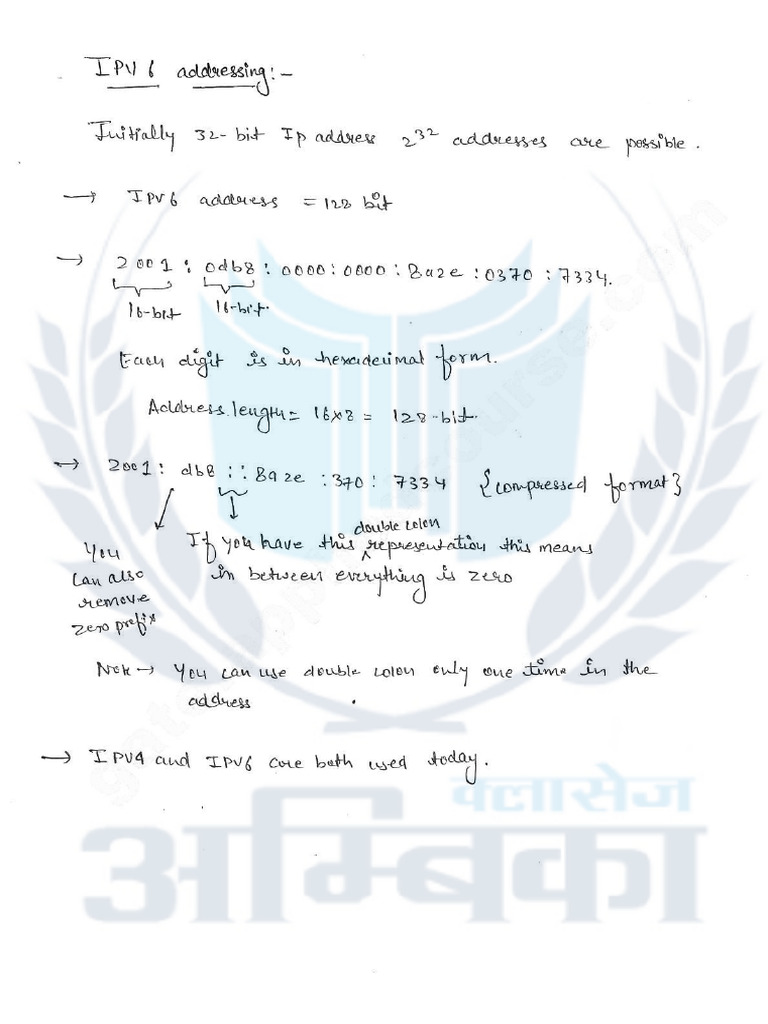 IPV6 addressing:-
Initially 32-bit Ip address 2^32 addresses are possible.
→ IPV6 address = 128 bit
→ 2001 : 0db8 : 0000 : 0000 : 8a2e : 0370 : 7334.
16-bit 16-bit.
Each digit is in hexadecimal form.
Address length = 16x8 = 128-bit.
→ 2001 : db8 :: 8a2e : 370 : 7334 {compressed format}
double colon
If you have this representation this means
in between everything is zero
You
can also
remove
zero prefix
Note → You can use double colon only one time in the
address
→ IPV4 and IPV6 are both used today.
क्लासेज
अम्बिका